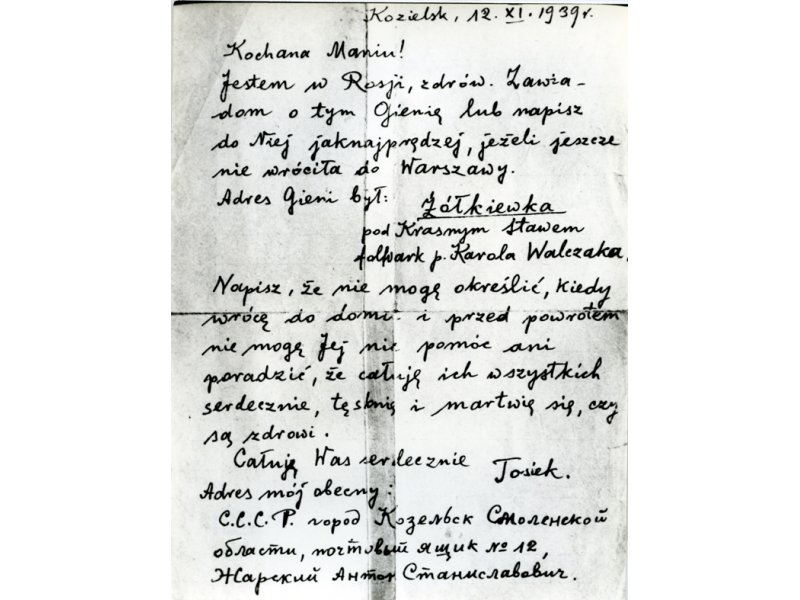 Kozielsk, 12. XI. 1939 r.
Kochana Maniu!
Jestem w Rosji, zdrów. Zawia-
dom o tym Gienię lub napisz
do Niej jaknajprędzej, jeżeli jeszcze
nie wróciła do Warszawy.
Adres Gieni był: Żółkiewka
pod Krasnym Stawem
folwark p. Karola Walczaka.
Napisz, że nie mogę określić, kiedy
wrócę do domu i przed powrotem
nie mogę Jej nic pomóc ani
poradzić, że całuję ich wszystkich
serdecznie, tęsknię i martwię się, czy
są zdrowi.
Całuję Was serdecznie Tosiek.
Adres mój obecny:
С.С.С.Р. город Козельск Смоленской
области, почтовый ящик № 12,
Жарский Антон Станиславович.